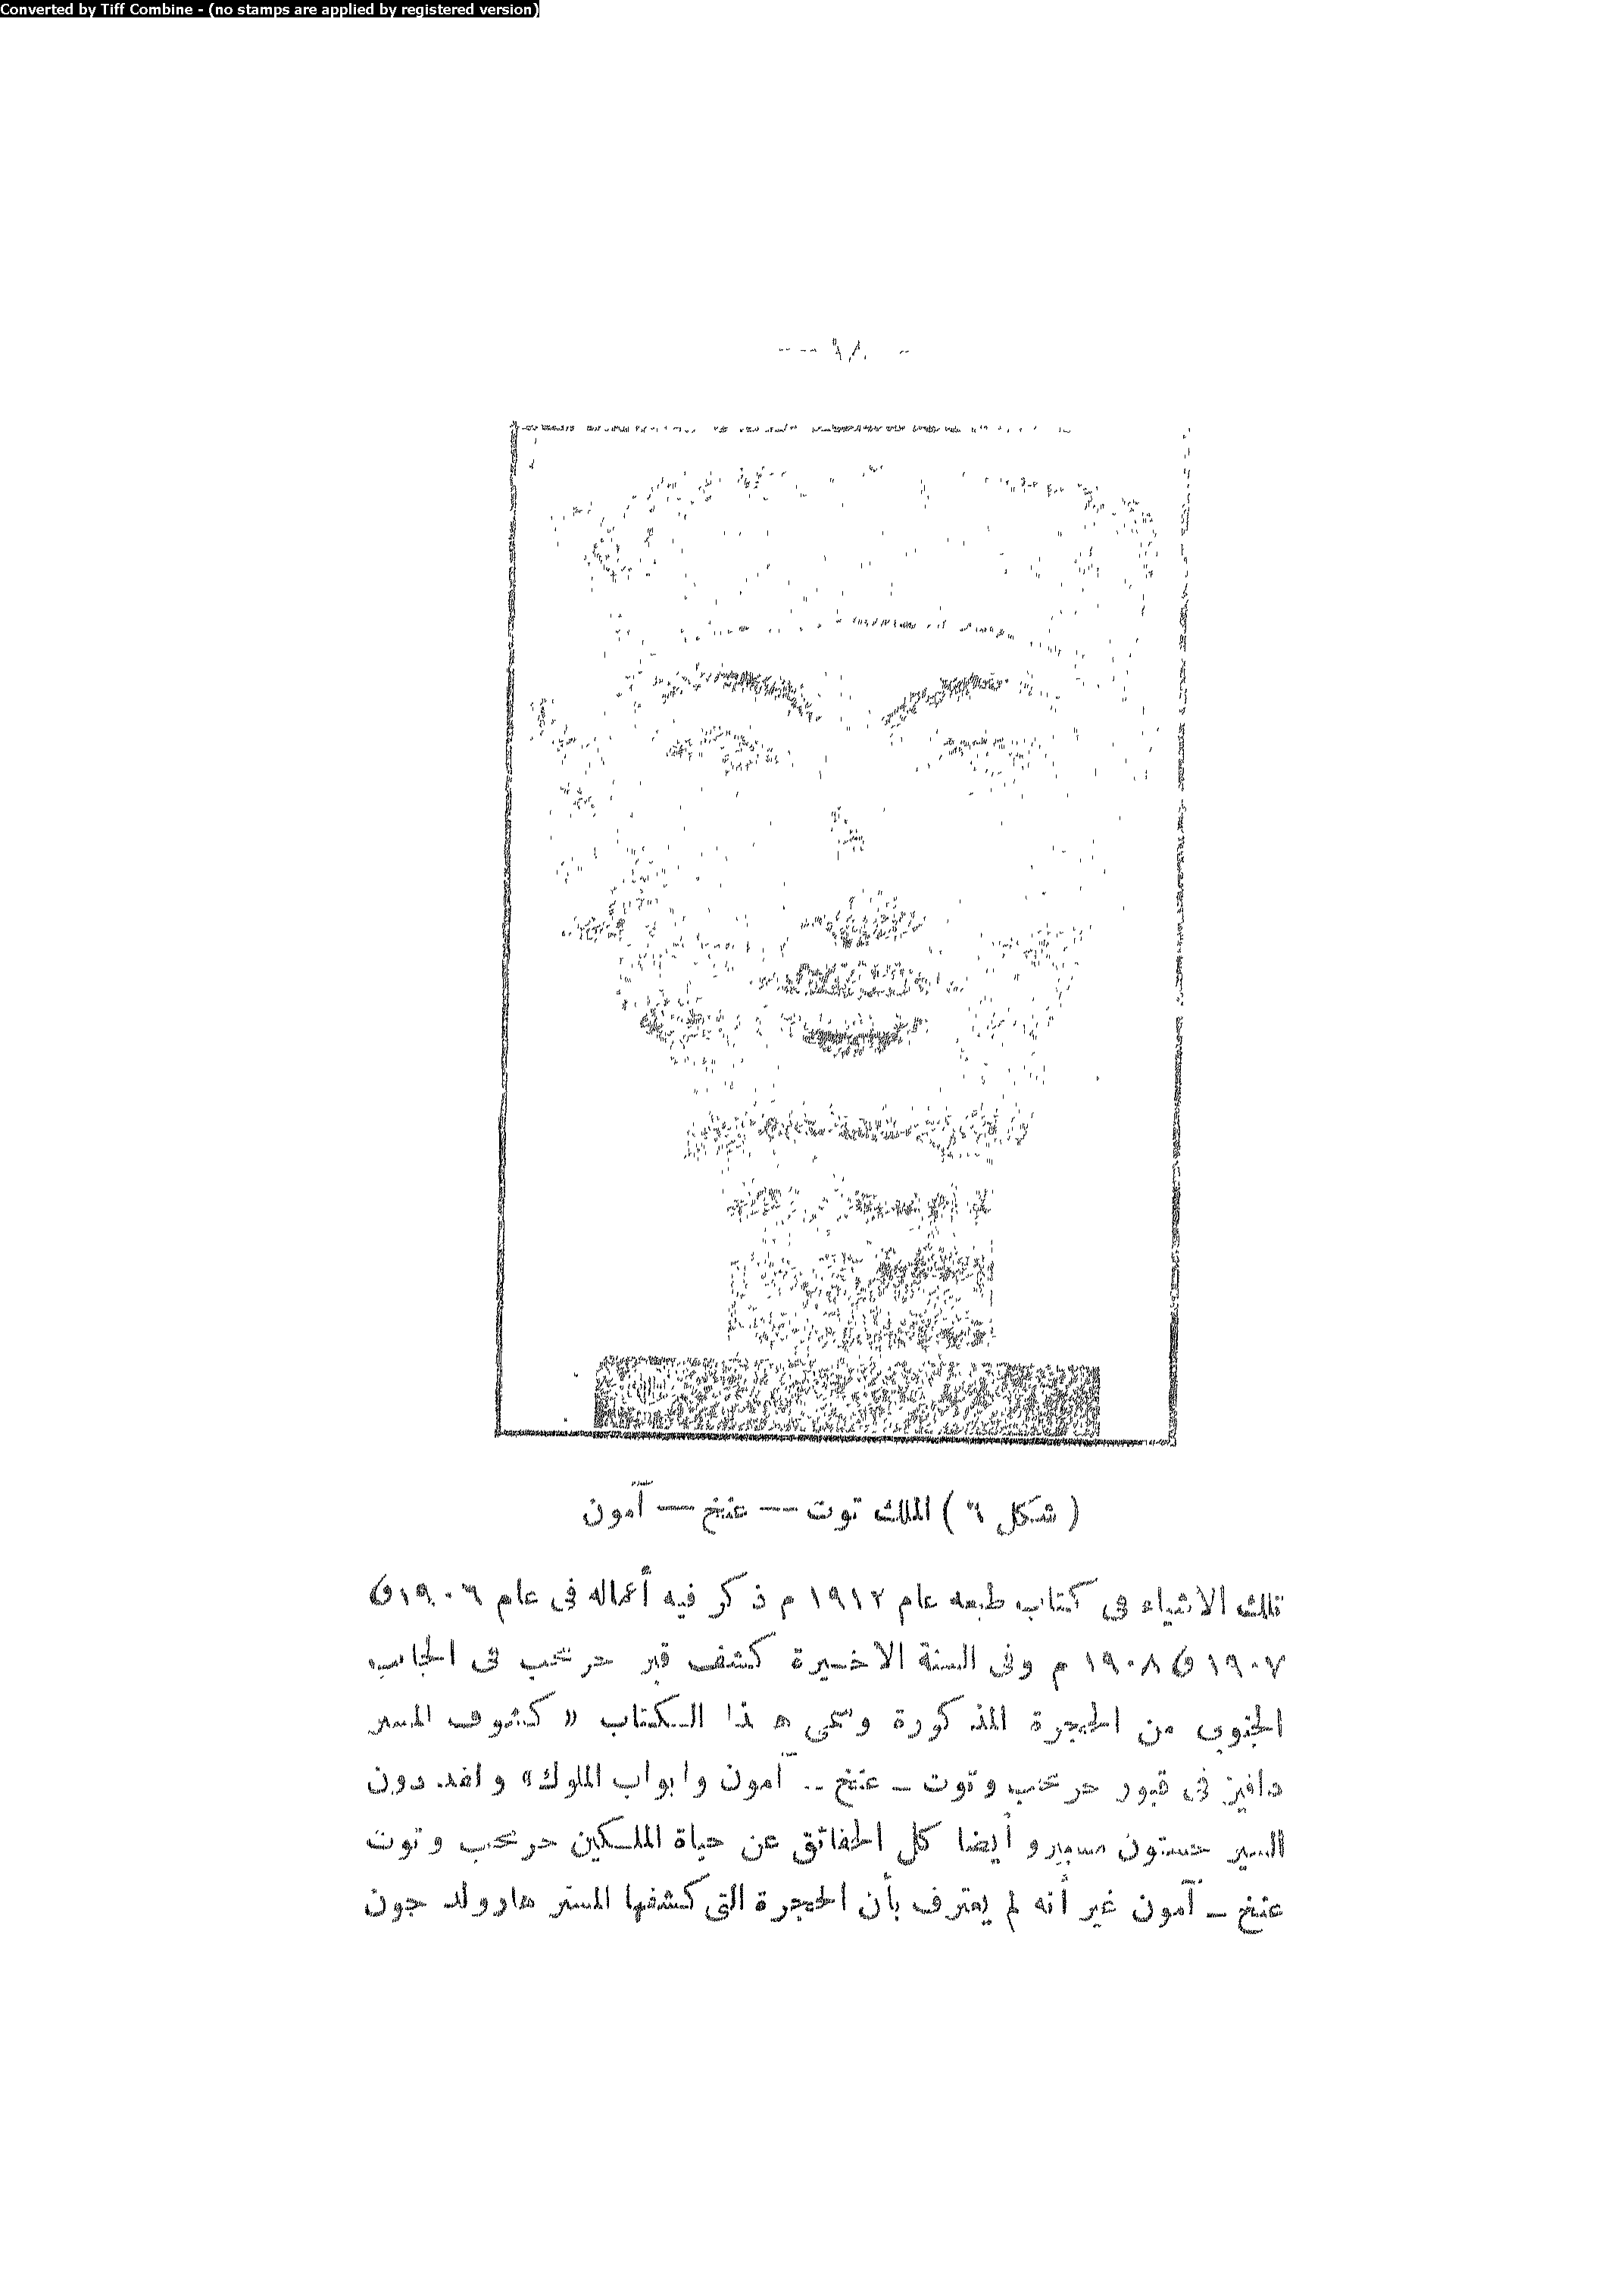 Converted by Tiff Combine - (no stamps are applied by registered version)
( شكل ٦ ) الملك توت — عنخ — آمون
تلك الاشياء فى كتاب طبعه عام ١٩١٢ م ذكر فيه أعماله فى عام ١٩٠٦ و
١٩٠٧ و ١٩٠٨ م وفى السنة الاخيرة كشف قبر حرمحب فى الجانب
الجنوبى من الحجرة المذكورة وسمى هذا الكتاب « كشوف المستر
دافيز فى قبور حرمحب وتوت – عنخ – آمون وابواب الملوك» ولقد دون
السير جستون مسبيرو أيضا كل الحقائق عن حياة الملكين حرمحب وتوت
عنخ – آمون غير أنه لم يعترف بأن الحجرة التى كشفها المستر هارولد جون